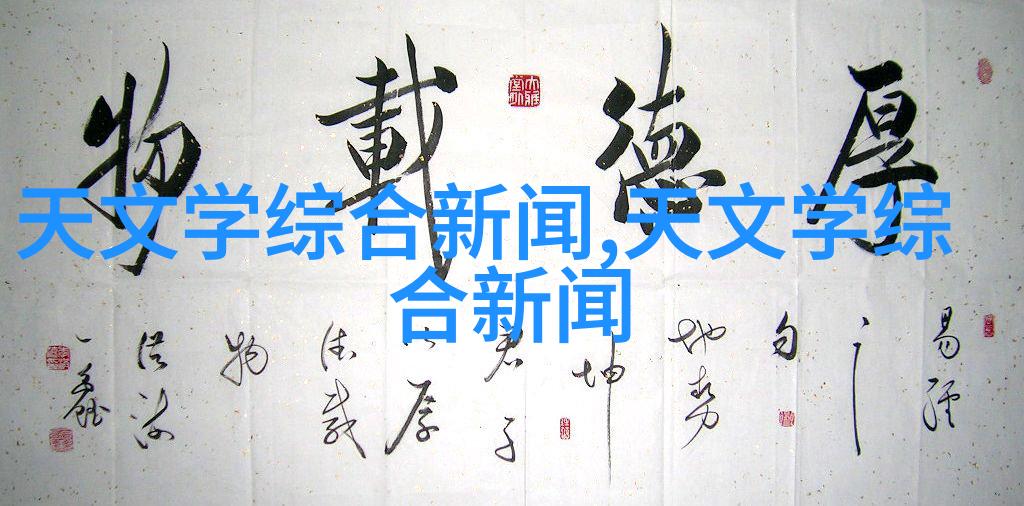 天文学综合新闻,天文学综
合新闻
厚德載物
易經
之
句
地势
坤
君子
以厚
德载
物